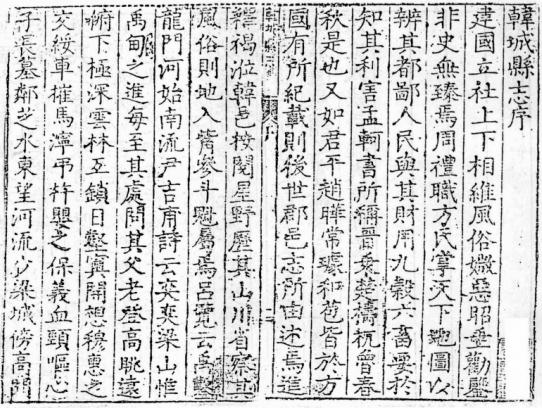 韓城縣志序
建國立社上下相維風俗媺惡昭垂勸鑒
非史無臻焉周禮職方氏掌天下地圖以
辨其都鄙人民與其財用九穀六畜要於
知其利害孟軻書所稱晉乘楚檮杌魯春
秋是也又如君平趙曄常璩和苞皆於方
國有所紀載則後世郡邑志所由述焉進
釋褐涖韓邑按閱星野歷其山川省察其
風俗則地入觜參斗魁屬焉呂覽云禹鑿
龍門河始南流尹吉甫詩云奕奕梁山惟
禹甸之進每至其處問其父老登高眺遠
俯下極深雲林互鎖日鑿竇開想穆惠之
交綏車摧馬濘弔杵嬰之保義血頸嘔心
子長墓鄰芝水東望河流少梁城傍高門